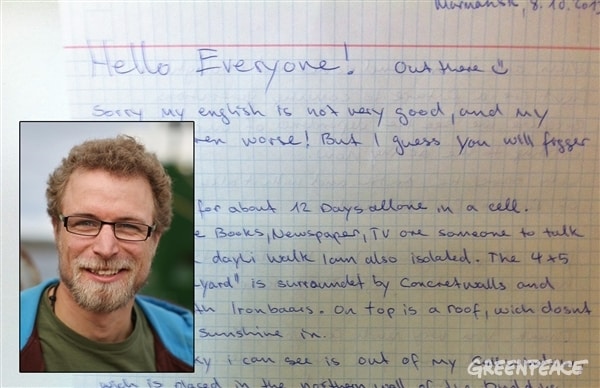 Murmansk, 8.10.2013
Hello Everyone! out there
Sorry my english is not very good, and my
worse! But I guess you will figger
for about 12 Days allone in a cell.
Books, Newspaper, TV ore someone to talk
dayli walk I am also isolated. The 4x5
yard" is surroundet by Concretwalls and
Ironbaars. On top is a roof, wich dosnt
sunshine in.
i can see is out of my
wich is placed in the northern wall of the
GREENPEACE